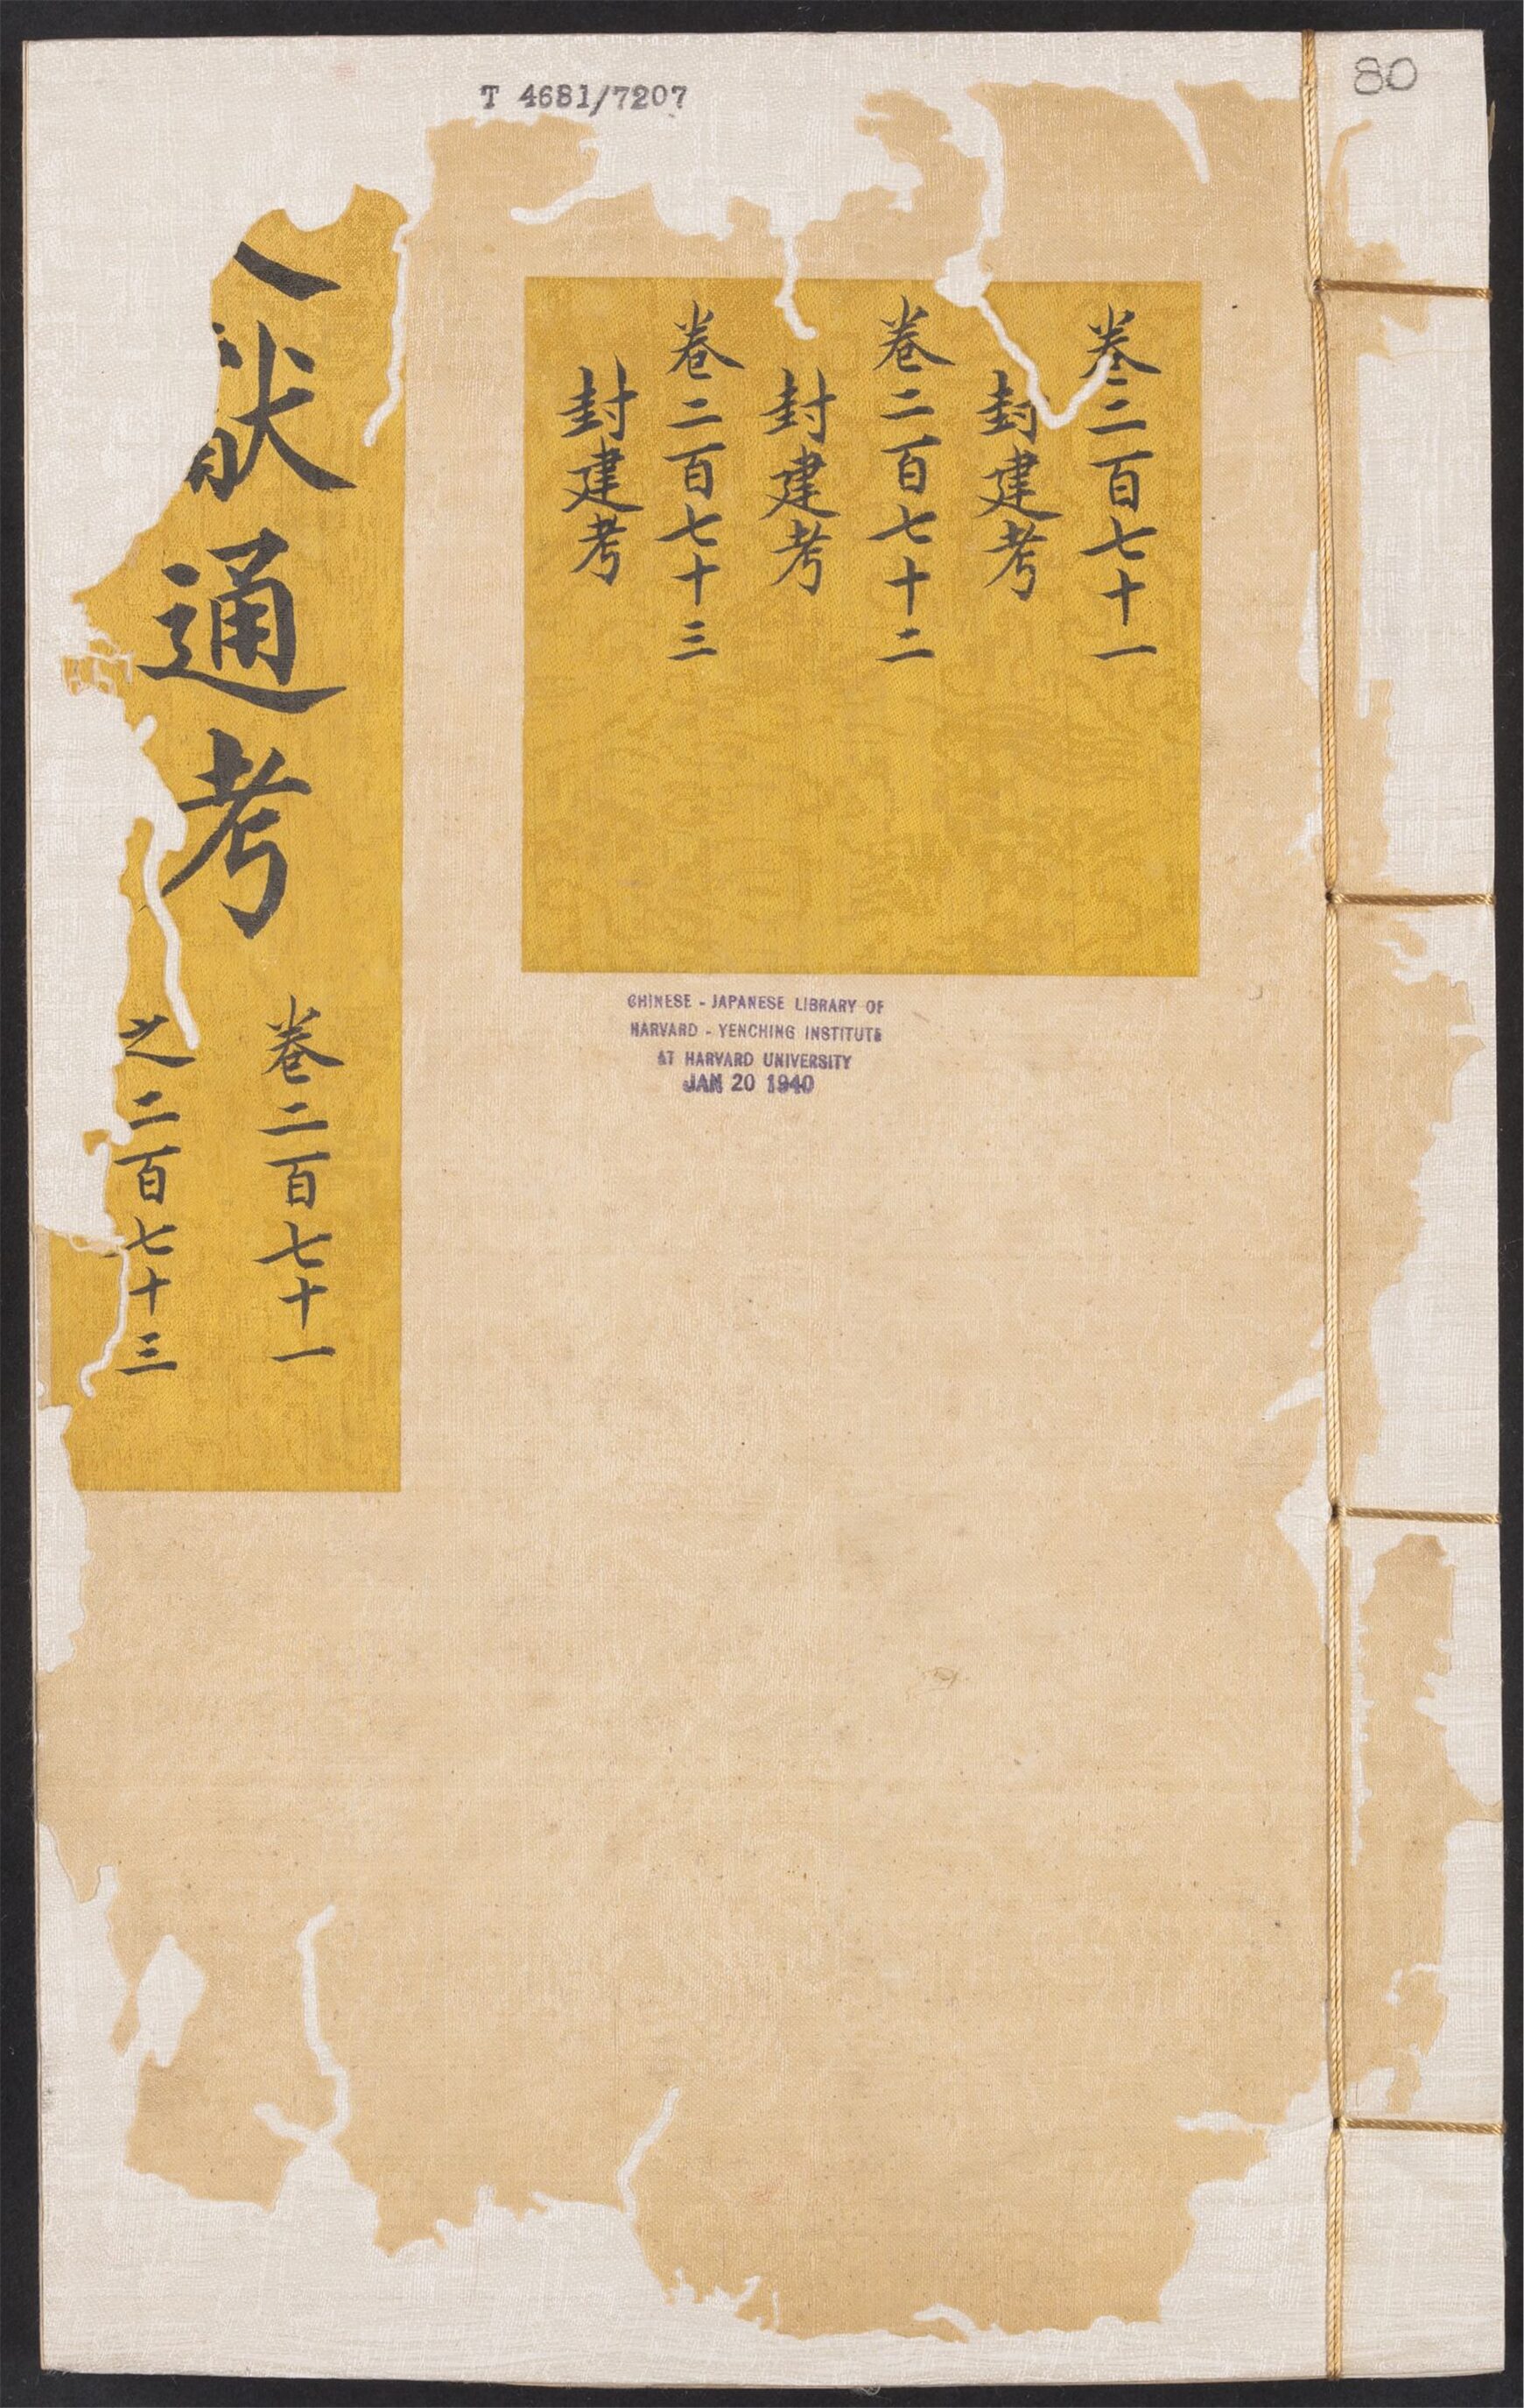 T 4681/7207
80
卷二百七十一
封建考
卷二百七十二
封建考
卷二百七十三
封建考
通考
卷二百七十一
之二百七十三
CHINESE - JAPANESE LIBRARY OF
HARVARD - YENCHING INSTITUTE
AT HARVARD UNIVERSITY
JAN 20 1940